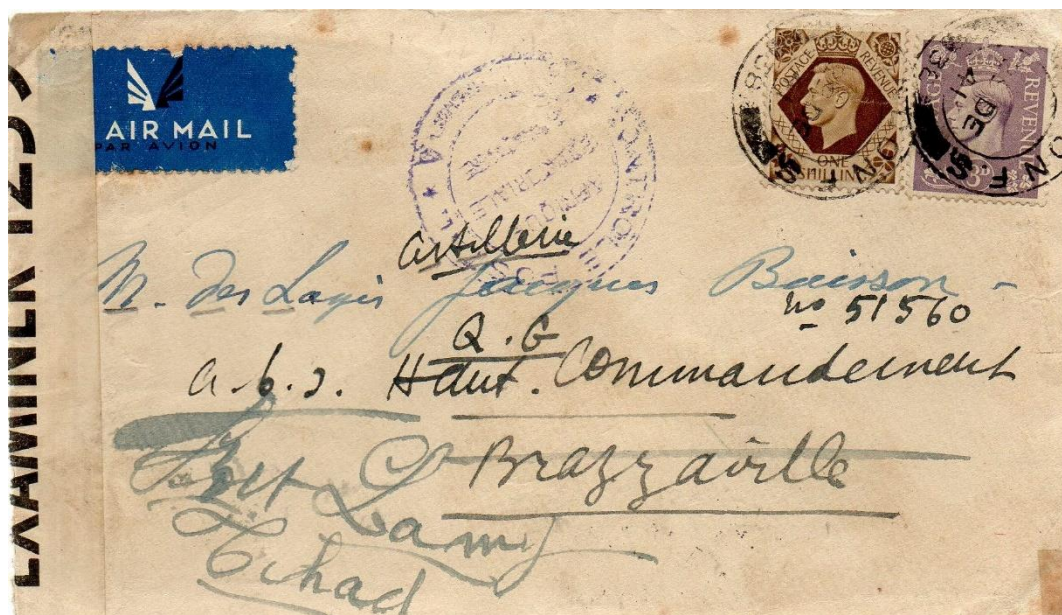 EXAMINER
AIR MAIL
PAR AVION
CONTROLE
AFRIQUE
POSTAGE REVENUE
ONE
SHILLING
REVENUE
3D
DE
41
artillerie
M. des Lagis Jacques Buisson -
no 51560
Q.G
a.b.s. Haut. Commandement
Brazzaville
Fort Lamy
Tchad